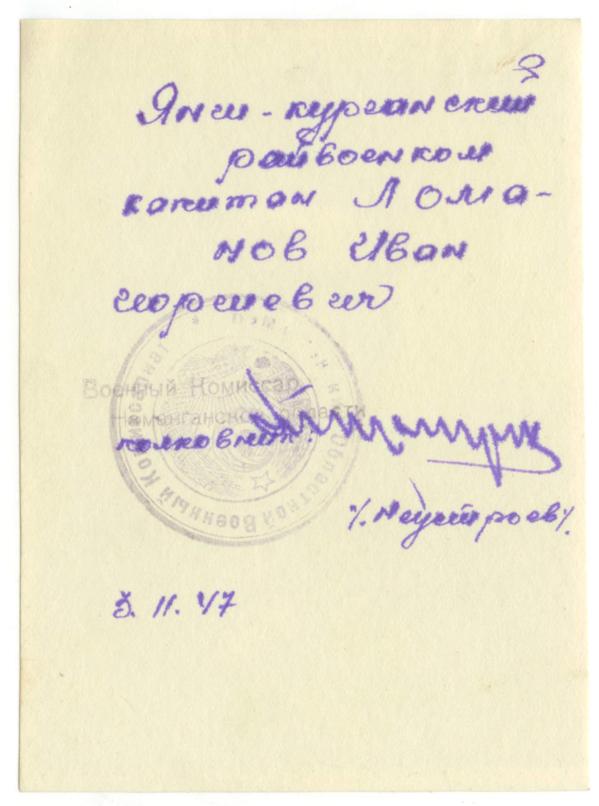 Янги-курганский
райвоенком
капитан Лома-
нов Иван
Военный Комиссар
Наманганской области
полковник
/Неустроев/
3.11.47
Областной Военный Комиссариат